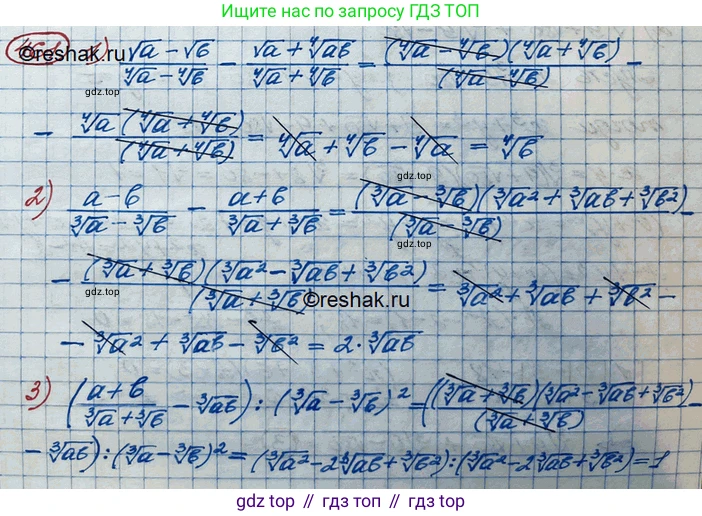 Ищите нас по запросу ГДЗ ТОП
©reshak.ru 1) (√a − √b)/(⁴√a − ⁴√b) − (√a + ⁴√ab)/(⁴√a + ⁴√b) = ((⁴√a − ⁴√b)(⁴√a + ⁴√b))/(⁴√a − ⁴√b) −
gdz.top
− (⁴√a (⁴√a + ⁴√b))/(⁴√a + ⁴√b) = ⁴√a + ⁴√b − ⁴√a = ⁴√b
gdz.top
2) (a − b)/(∛a − ∛b) − (a + b)/(∛a + ∛b) = ((∛a − ∛b)(∛a² + ∛ab + ∛b²))/(∛a − ∛b) −
gdz.top
− ((∛a + ∛b)(∛a² − ∛ab + ∛b²))/(∛a + ∛b) = ∛a² + ∛ab + ∛b² −
gdz.top ©reshak.ru
− ∛a² + ∛ab − ∛b² = 2·∛ab
3) ((a + b)/(∛a + ∛b) − ∛ab) : (∛a − ∛b)² = (((∛a + ∛b)(∛a² − ∛ab + ∛b²))/(∛a + ∛b) −
− ∛ab) : (∛a − ∛b)² = (∛a² − 2∛ab + ∛b²) : (∛a² − 2∛ab + ∛b²) = 1
gdz top // гдз топ // gdz top